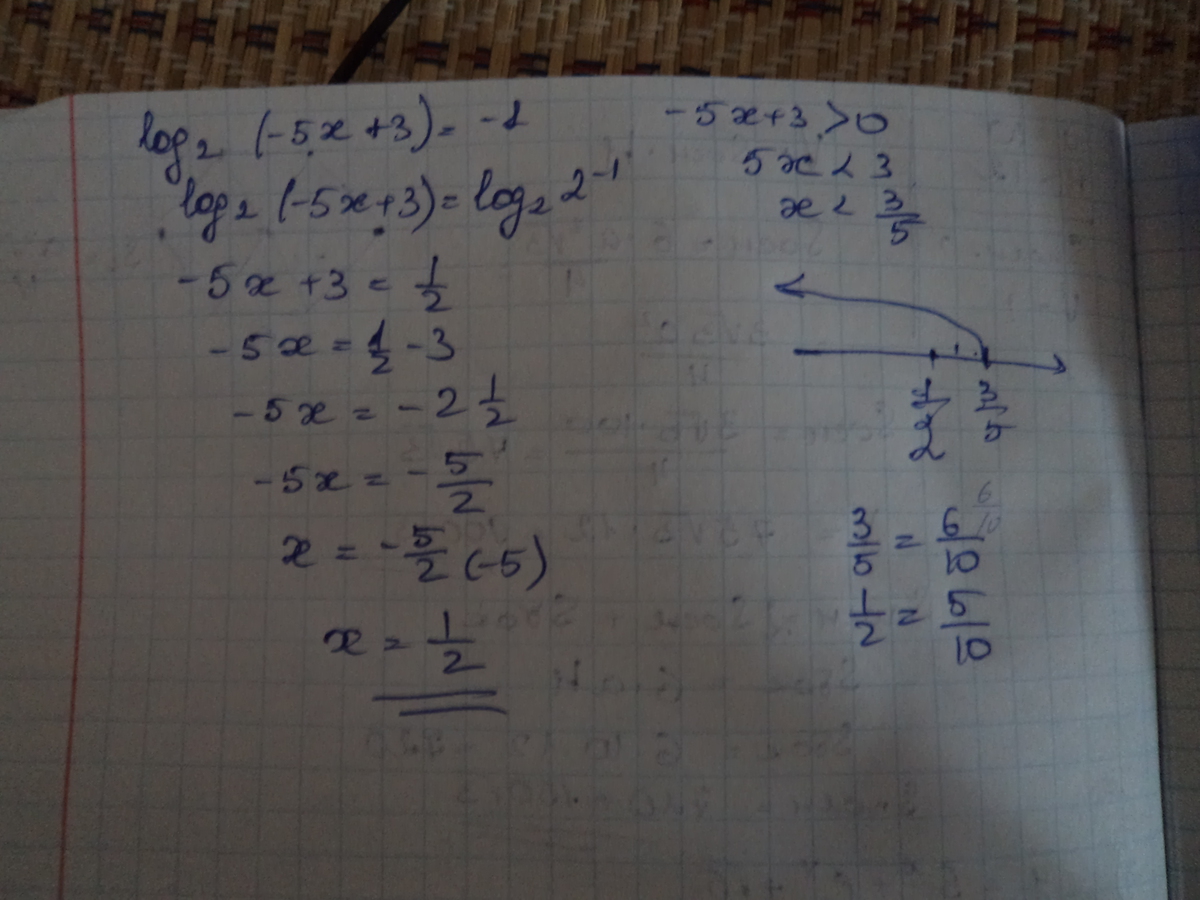 log₂ (-5x+3) = -1
log₂ (-5x+3) = log₂ 2⁻¹
-5x + 3 = 1/2
-5x = 1/2 - 3
-5x = -2 1/2
-5x = -5/2
x = -5/2 (-5)
x = 1/2
-5x+3 > 0
5x < 3
x < 3/5
1/2 3/5
3/5 = 6/10 6/10
1/2 = 5/10